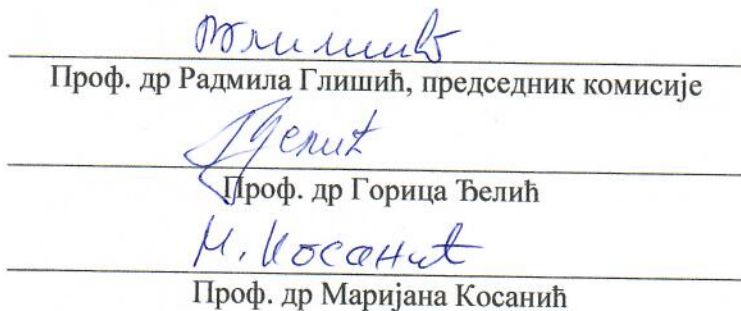 Проф. др Радмила Глишић, председник комисије
Проф. др Горица Ђелић
М. Косанић
Проф. др Маријана Косанић